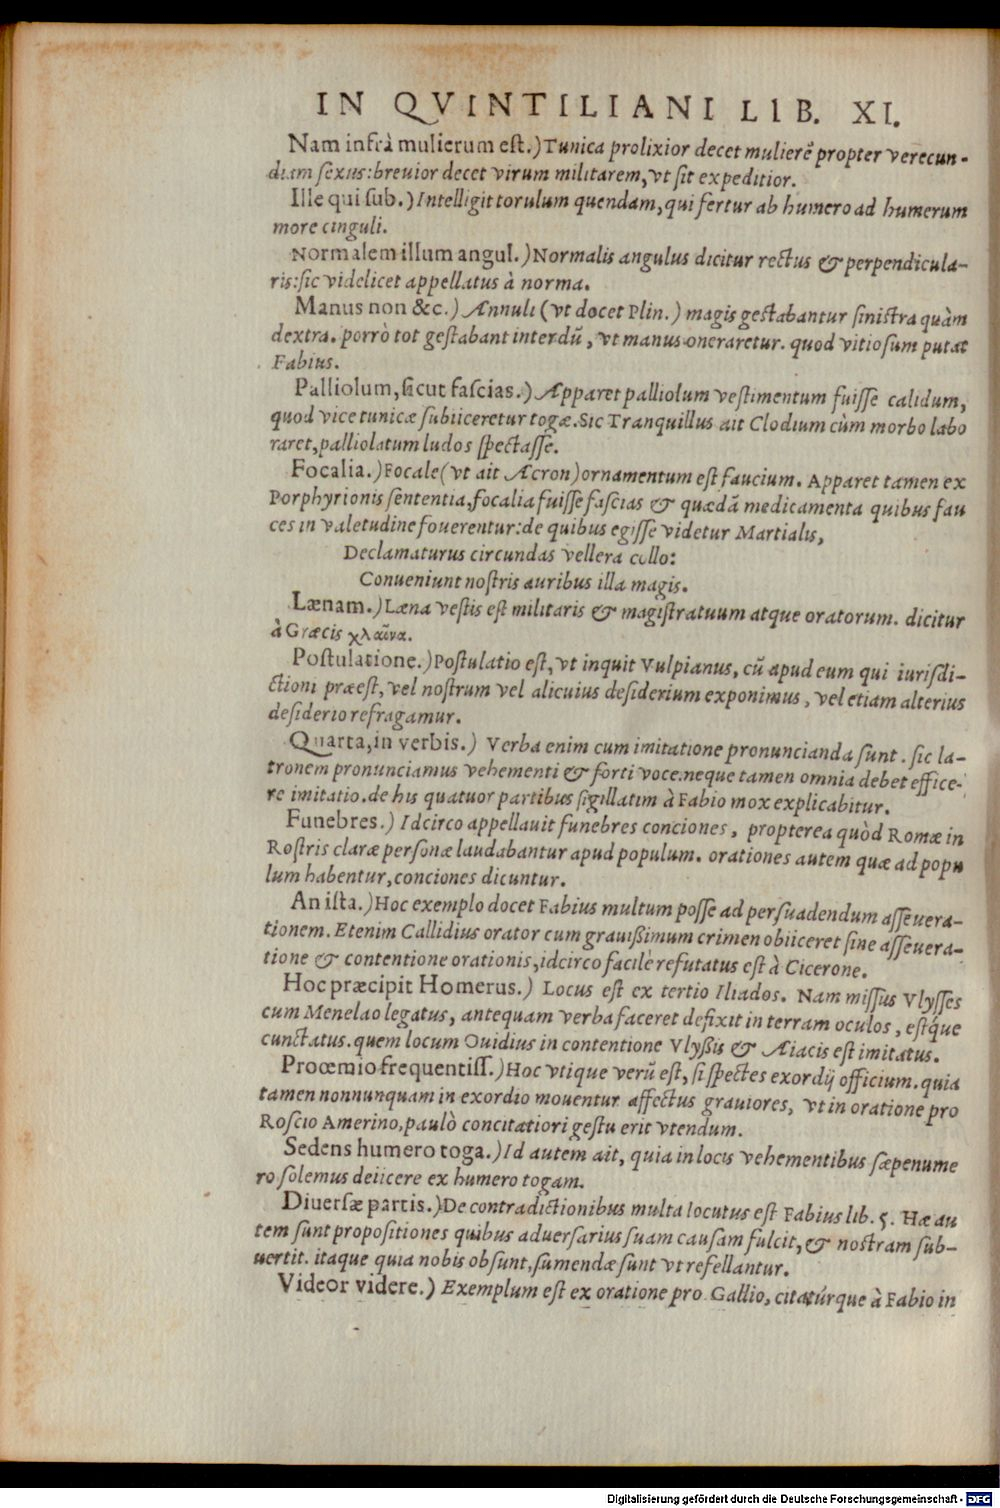 IN QVINTILIANI LIB. XI.
Nam infrà mulierum est.) Tunica prolixior decet mulierē propter verecun-
diam sexus: breuior decet virum militarem, vt sit expeditior.
Ille qui sub.) Intelligit torulum quendam, qui fertur ab humero ad humerum
more cinguli.
Normalem illum angul.) Normalis angulus dicitur rectus & perpendicula-
ris: sic videlicet appellatus à norma.
Manus non &c.) Annuli (vt docet Plin.) magis gestabantur sinistra quàm
dextra. porrò tot gestabant interdū, vt manus oneraretur. quod vitiosum putat
Fabius.
Palliolum, sicut fascias.) Apparet palliolum vestimentum fuisse calidum,
quod vice tunicæ subiiceretur togæ. Sic Tranquillus ait Clodium cùm morbo labo
raret, palliolatum ludos spectasse.
Focalia.) Focale (vt ait Acron) ornamentum est faucium. Apparet tamen ex
Porphyrionis sententia, focalia fuisse fascias & quædā medicamenta quibus fau
ces in valetudine fouerentur: de quibus egisse videtur Martialis,
Declamaturus circundas vellera collo:
Conueniunt nostris auribus illa magis.
Lænam.) Læna vestis est militaris & magistratuum atque oratorum. dicitur
à Græcis χλαῖνα.
Postulatione.) Postulatio est, vt inquit Vulpianus, cū apud eum qui iurisdi-
ctioni præest, vel nostrum vel alicuius desiderium exponimus, vel etiam alterius
desiderio refragamur.
Quarta, in verbis.) Verba enim cum imitatione pronuncianda sunt. sic la-
tronem pronunciamus vehementi & forti voce. neque tamen omnia debet effice-
re imitatio. de his quatuor partibus sigillatim à Fabio mox explicabitur.
Funebres.) Idcirco appellauit funebres conciones, propterea quòd Romæ in
Rostris claræ personæ laudabantur apud populum. orationes autem quæ ad popu
lum habentur, conciones dicuntur.
An ista.) Hoc exemplo docet Fabius multum posse ad persuadendum asseuera-
tionem. Etenim Callidius orator cum grauißimum crimen obiiceret sine asseuera-
tione & contentione orationis, idcirco facilè refutatus est à Cicerone.
Hoc præcipit Homerus.) Locus est ex tertio Iliados. Nam missus Vlysses
cum Menelao legatus, antequam verba faceret defixit in terram oculos, estq́ue
cunctatus. quem locum Ouidius in contentione Vlyßis & Aiacis est imitatus.
Proœmio frequentiss.) Hoc vtique verū est, si spectes exordij officium. quia
tamen nonnunquam in exordio mouentur affectus grauiores, vt in oratione pro
Roscio Amerino, paulò concitatiori gestu erit vtendum.
Sedens humero toga.) Id autem ait, quia in locis vehementibus sæpenume
ro solemus deiicere ex humero togam.
Diuersæ partis.) De contradictionibus multa locutus est Fabius lib. 5. Hæ au
tem sunt propositiones quibus aduersarius suam causam fulcit, & nostram sub-
uertit. itaque quia nobis obsunt, sumendæ sunt vt refellantur.
Videor videre.) Exemplum est ex oratione pro Gallio, citatúrque à Fabio in
Digitalisierung gefördert durch die Deutsche Forschungsgemeinschaft - DFG